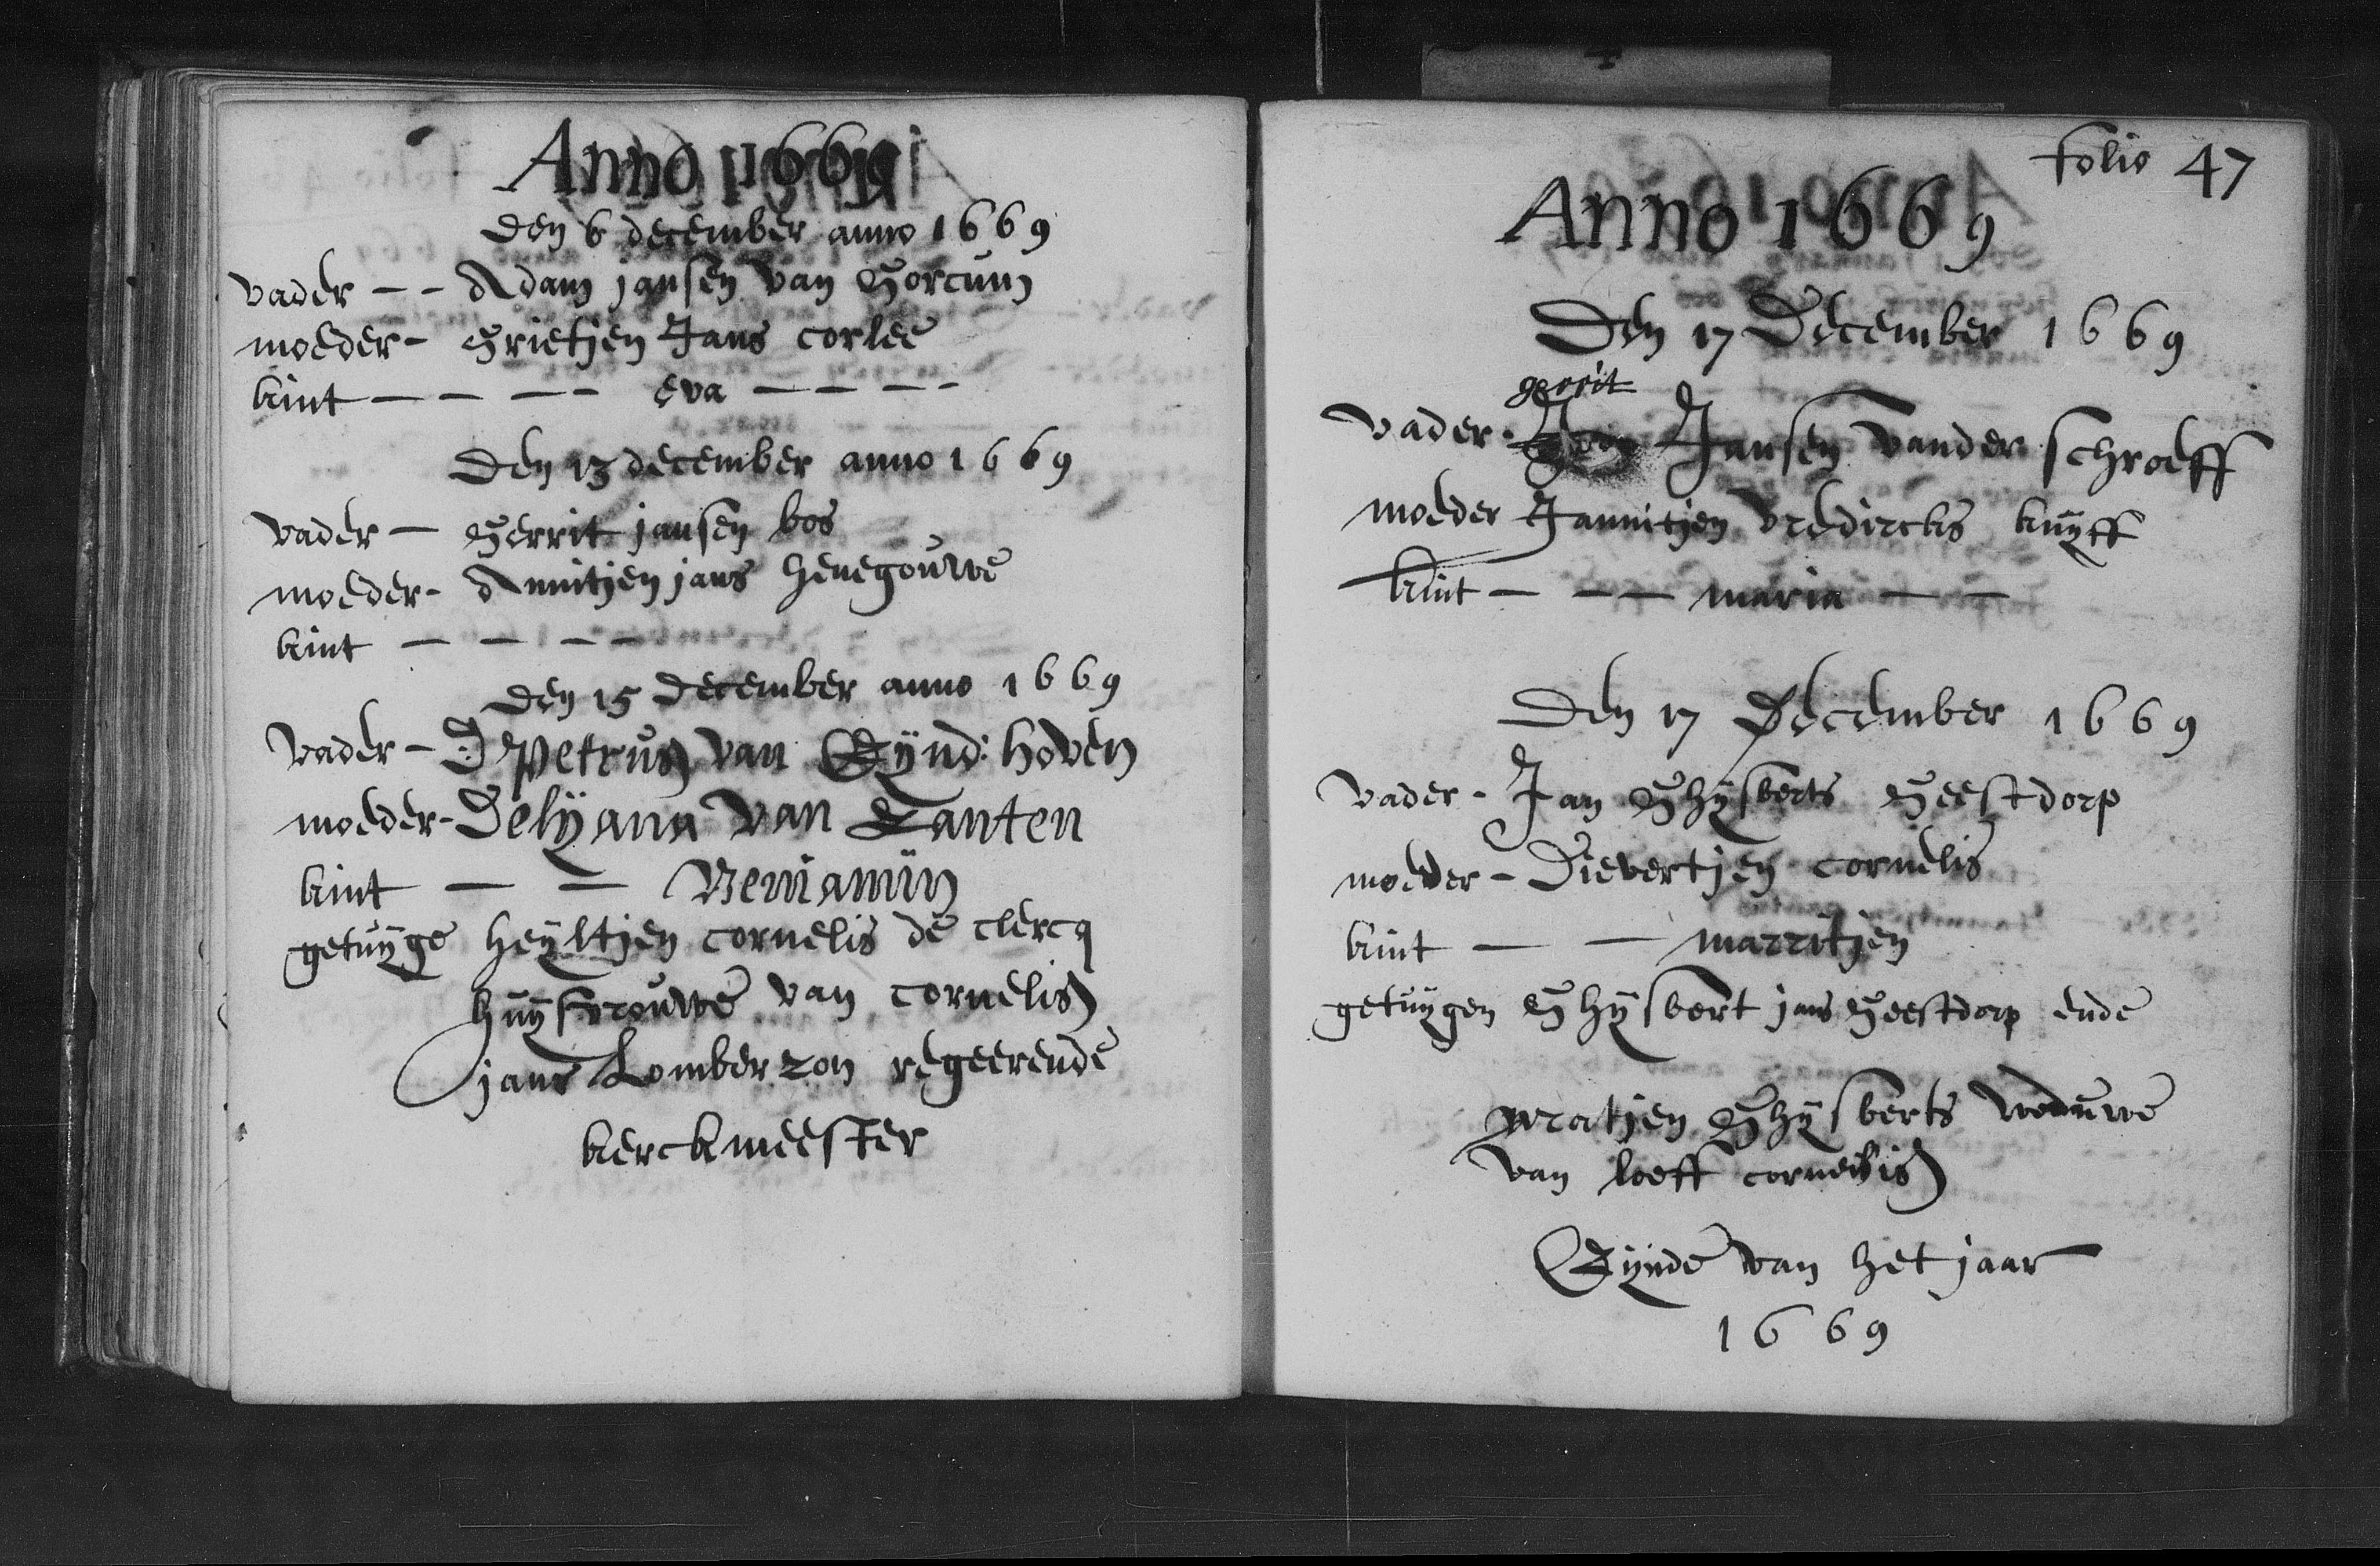 Anno 1669
den 6 december anno 1669
vader -- Adam jansen van Gorcum
moeder - Grietjen Jans corlee
kint ---- eva ----
Den 13 december anno 1669
vader - Gerrit jansen bos
moeder - Annitjen jans henegouwe
kint ----
den 15 december anno 1669
vader - D: Petrus van Eynd: hoven
moeder - Delyana van Santen
kint -- Beniamin
getuyge heyltjen cornelis de clercq
huysvrouwe van cornelis
jans Lomberzon regeerende
kerckmeester
folio 47
Anno 1669
Den 17 December 1669
gerrit
vader - Jansen vander schroeff
moeder Jannitjen vredircks kuyff
kint --- maria --
Den 17 December 1669
vader - Jan Ghysberts Geestdorp
moeder - Dievertjen cornelis
kint -- marritjen
getuygen Ghysbert jans Geestdorp ende
Ghysberts weduwe
van loeff cornelis
Eynde van het jaar
1669